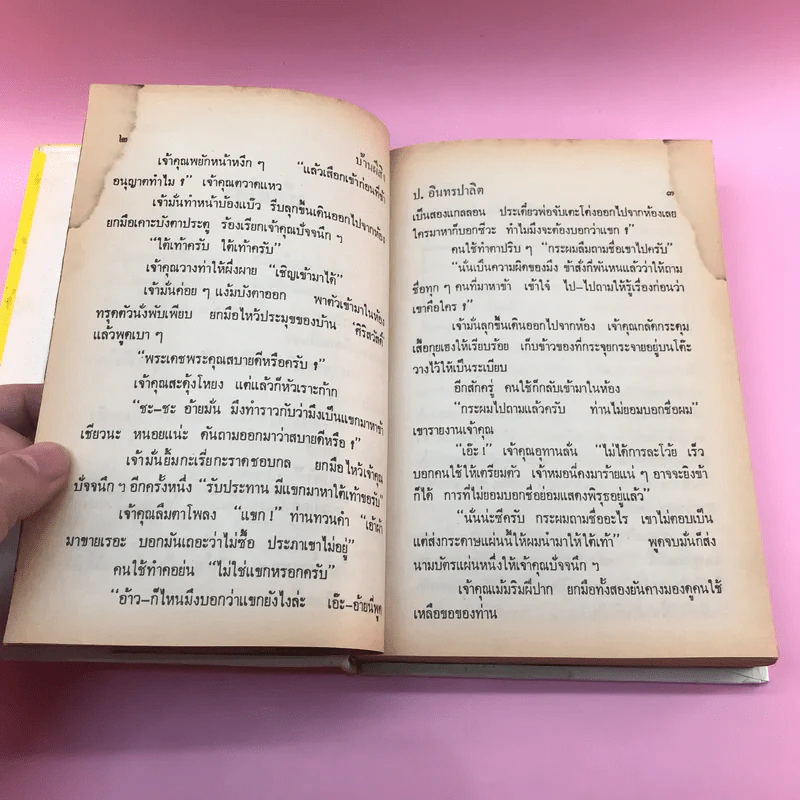 ๒
บ้านผีสิง
เจ้าคุณพยักหน้าหงึก ๆ “แล้วเสือกเข้าก่อนที่ข้า
อนุญาตทำไม ?” เจ้าคุณตวาดแหว
เจ้ามั่นทำหน้าบ้องแบ๊ว รีบลุกขึ้นเดินออกไปจากห้อง
ยกมือเคาะบังตาประตู ร้องเรียกเจ้าคุณปัจจนึก ๆ
“ใต้เท้าครับ ใต้เท้าครับ”
เจ้าคุณวางท่าให้ผึ่งผาย “เชิญเข้ามาได้”
เจ้ามั่นค่อย ๆ แง้มบังตาออก พาตัวเข้ามาในห้อง
ทรุดตัวนั่งพับเพียบ ยกมือไหว้ประมุขของบ้าน ‘ศิริสวัสดิ์’
แล้วพูดเบา ๆ
“พระเดชพระคุณสบายดีหรือครับ ?”
เจ้าคุณสะดุ้งโหยง แต่แล้วก็หัวเราะก้าก
“ชะ-ชะ อ้ายมั่น มึงทำราวกับว่ามึงเป็นแขกมาหาข้า
เชียวนะ หนอยแน่ะ ดันถามออกมาว่าสบายดีหรือ ?”
เจ้ามั่นยิ้มกะเรี่ยกะราดชอบกล ยกมือไหว้เจ้าคุณ
ปัจจนึก ๆ อีกครั้งหนึ่ง “รับประทาน มีแขกมาหาใต้เท้าขอรับ”
เจ้าคุณลืมตาโพลง “แขก !” ท่านทวนคำ “เอาผ้า
มาขายเรอะ บอกมันเถอะว่าไม่ซื้อ ประภาเขาไม่อยู่”
คนใช้ทำคอย่น “ไม่ใช่แขกหรอกครับ”
“อ้าว-ก็ไหนมึงบอกว่าแขกยังไงล่ะ เอ๊ะ-อ้ายนี่พูด
ป. อินทรปาลิต
๓
เป็นสองแกลลอน ประเดี๋ยวพ่อจับเตะโด่งออกไปจากห้องเลย
ใครมาหาก็บอกซีวะ ทำไมมึงจะต้องบอกว่าแขก ?”
คนใช้ทำตาปริบ ๆ “กระผมลืมถามชื่อเขาไปครับ”
“นั่นเป็นความผิดของมึง ข้าสั่งกี่พันหนแล้วว่าให้ถาม
ชื่อทุก ๆ คนที่มาหาข้า เข้าใจ๋ ไป-ไปถามให้รู้เรื่องก่อนว่า
เขาคือใคร ?”
เจ้ามั่นลุกขึ้นเดินออกไปจากห้อง เจ้าคุณกลัดกระดุม
เสื้อกุยเฮงให้เรียบร้อย เก็บข้าวของที่กระจุยกระจายอยู่บนโต๊ะ
วางไว้ให้เป็นระเบียบ
อีกสักครู่ คนใช้ก็กลับเข้ามาในห้อง
“กระผมไปถามแล้วครับ ท่านไม่ยอมบอกชื่อผม”
เขารายงานเจ้าคุณ
“เอ๊ะ !” เจ้าคุณอุทานลั่น “ไม่ได้การละโว้ย เร็ว
บอกคนใช้ให้เตรียมตัว เจ้าหมอนี่คงมาร้ายแน่ ๆ อาจจะยิงข้า
ก็ได้ การที่ไม่ยอมบอกชื่อย่อมแสดงพิรุธอยู่แล้ว”
“นั่นน่ะซีครับ กระผมถามชื่ออะไร เขาไม่ตอบเป็น
แต่ส่งกระดาษแผ่นนี้ให้ผมนำมาให้ใต้เท้า” พูดจบมั่นก็ส่ง
นามบัตรแผ่นหนึ่งให้เจ้าคุณปัจจนึก ๆ
เจ้าคุณเม้มริมฝีปาก ยกมือทั้งสองยันคางมองดูคนใช้
เหลือขอของท่าน